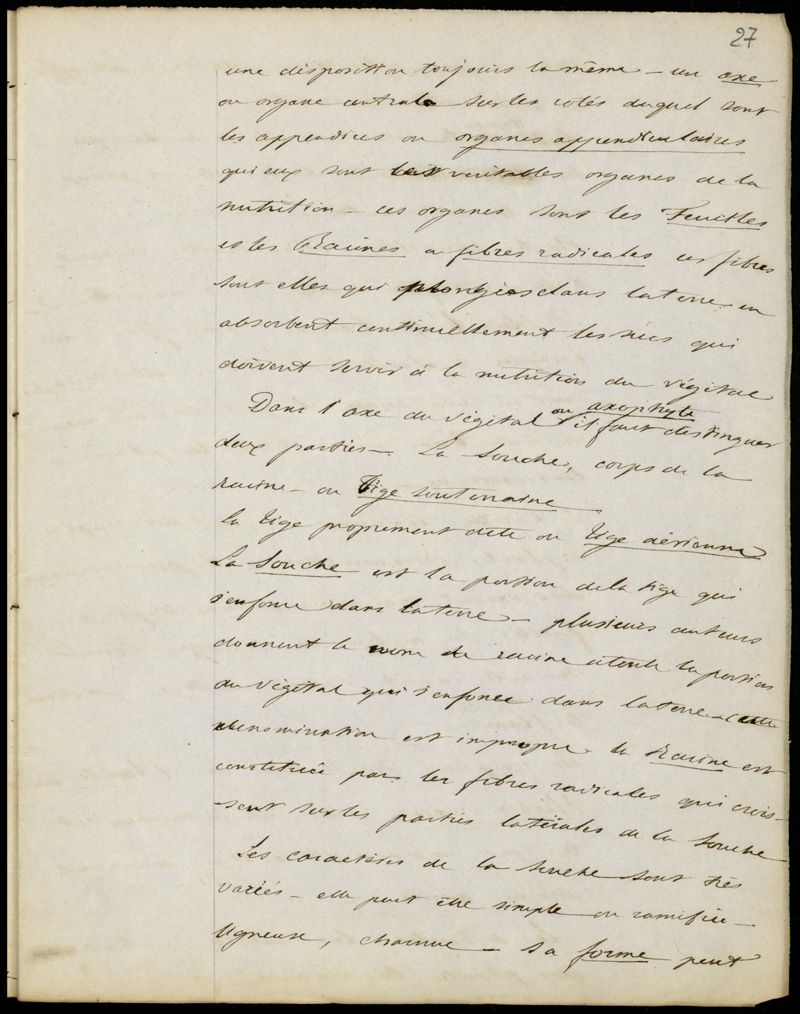 27
une disposition toujours la même – un axe
ou organe central sur les cotés duquel sont
les appendices ou organes appendiculaires
qui eux sont les veritables organes de la
nutrition – ces organes sont les Feuilles
et les Racines ou fibres radicales ces fibres
sont elles qui plongées dans la terre en
absorbent continuellement les sucs qui
doivent servir à la nutrition du végétal
Dans l'axe du végétal ou axophyte il faut distinguer
deux parties – La Souche, corps de la
racine – ou Tige souterraine
la tige proprement dite ou Tige aérienne
La Souche est la portion de la tige qui
s'enfonce dans la terre – plusieurs auteurs
donnent le nom de racine à toute la portion
du végétal qui s'enfonce dans la terre – cette
denomination est impropre la Racine est
constituée par les fibres radicales qui crois-
sent sur les parties latérales de la souche
Les caractères de la souche sont très
variés – elle peut être simple ou ramifiée –
ligneuse, charnue – sa forme peut